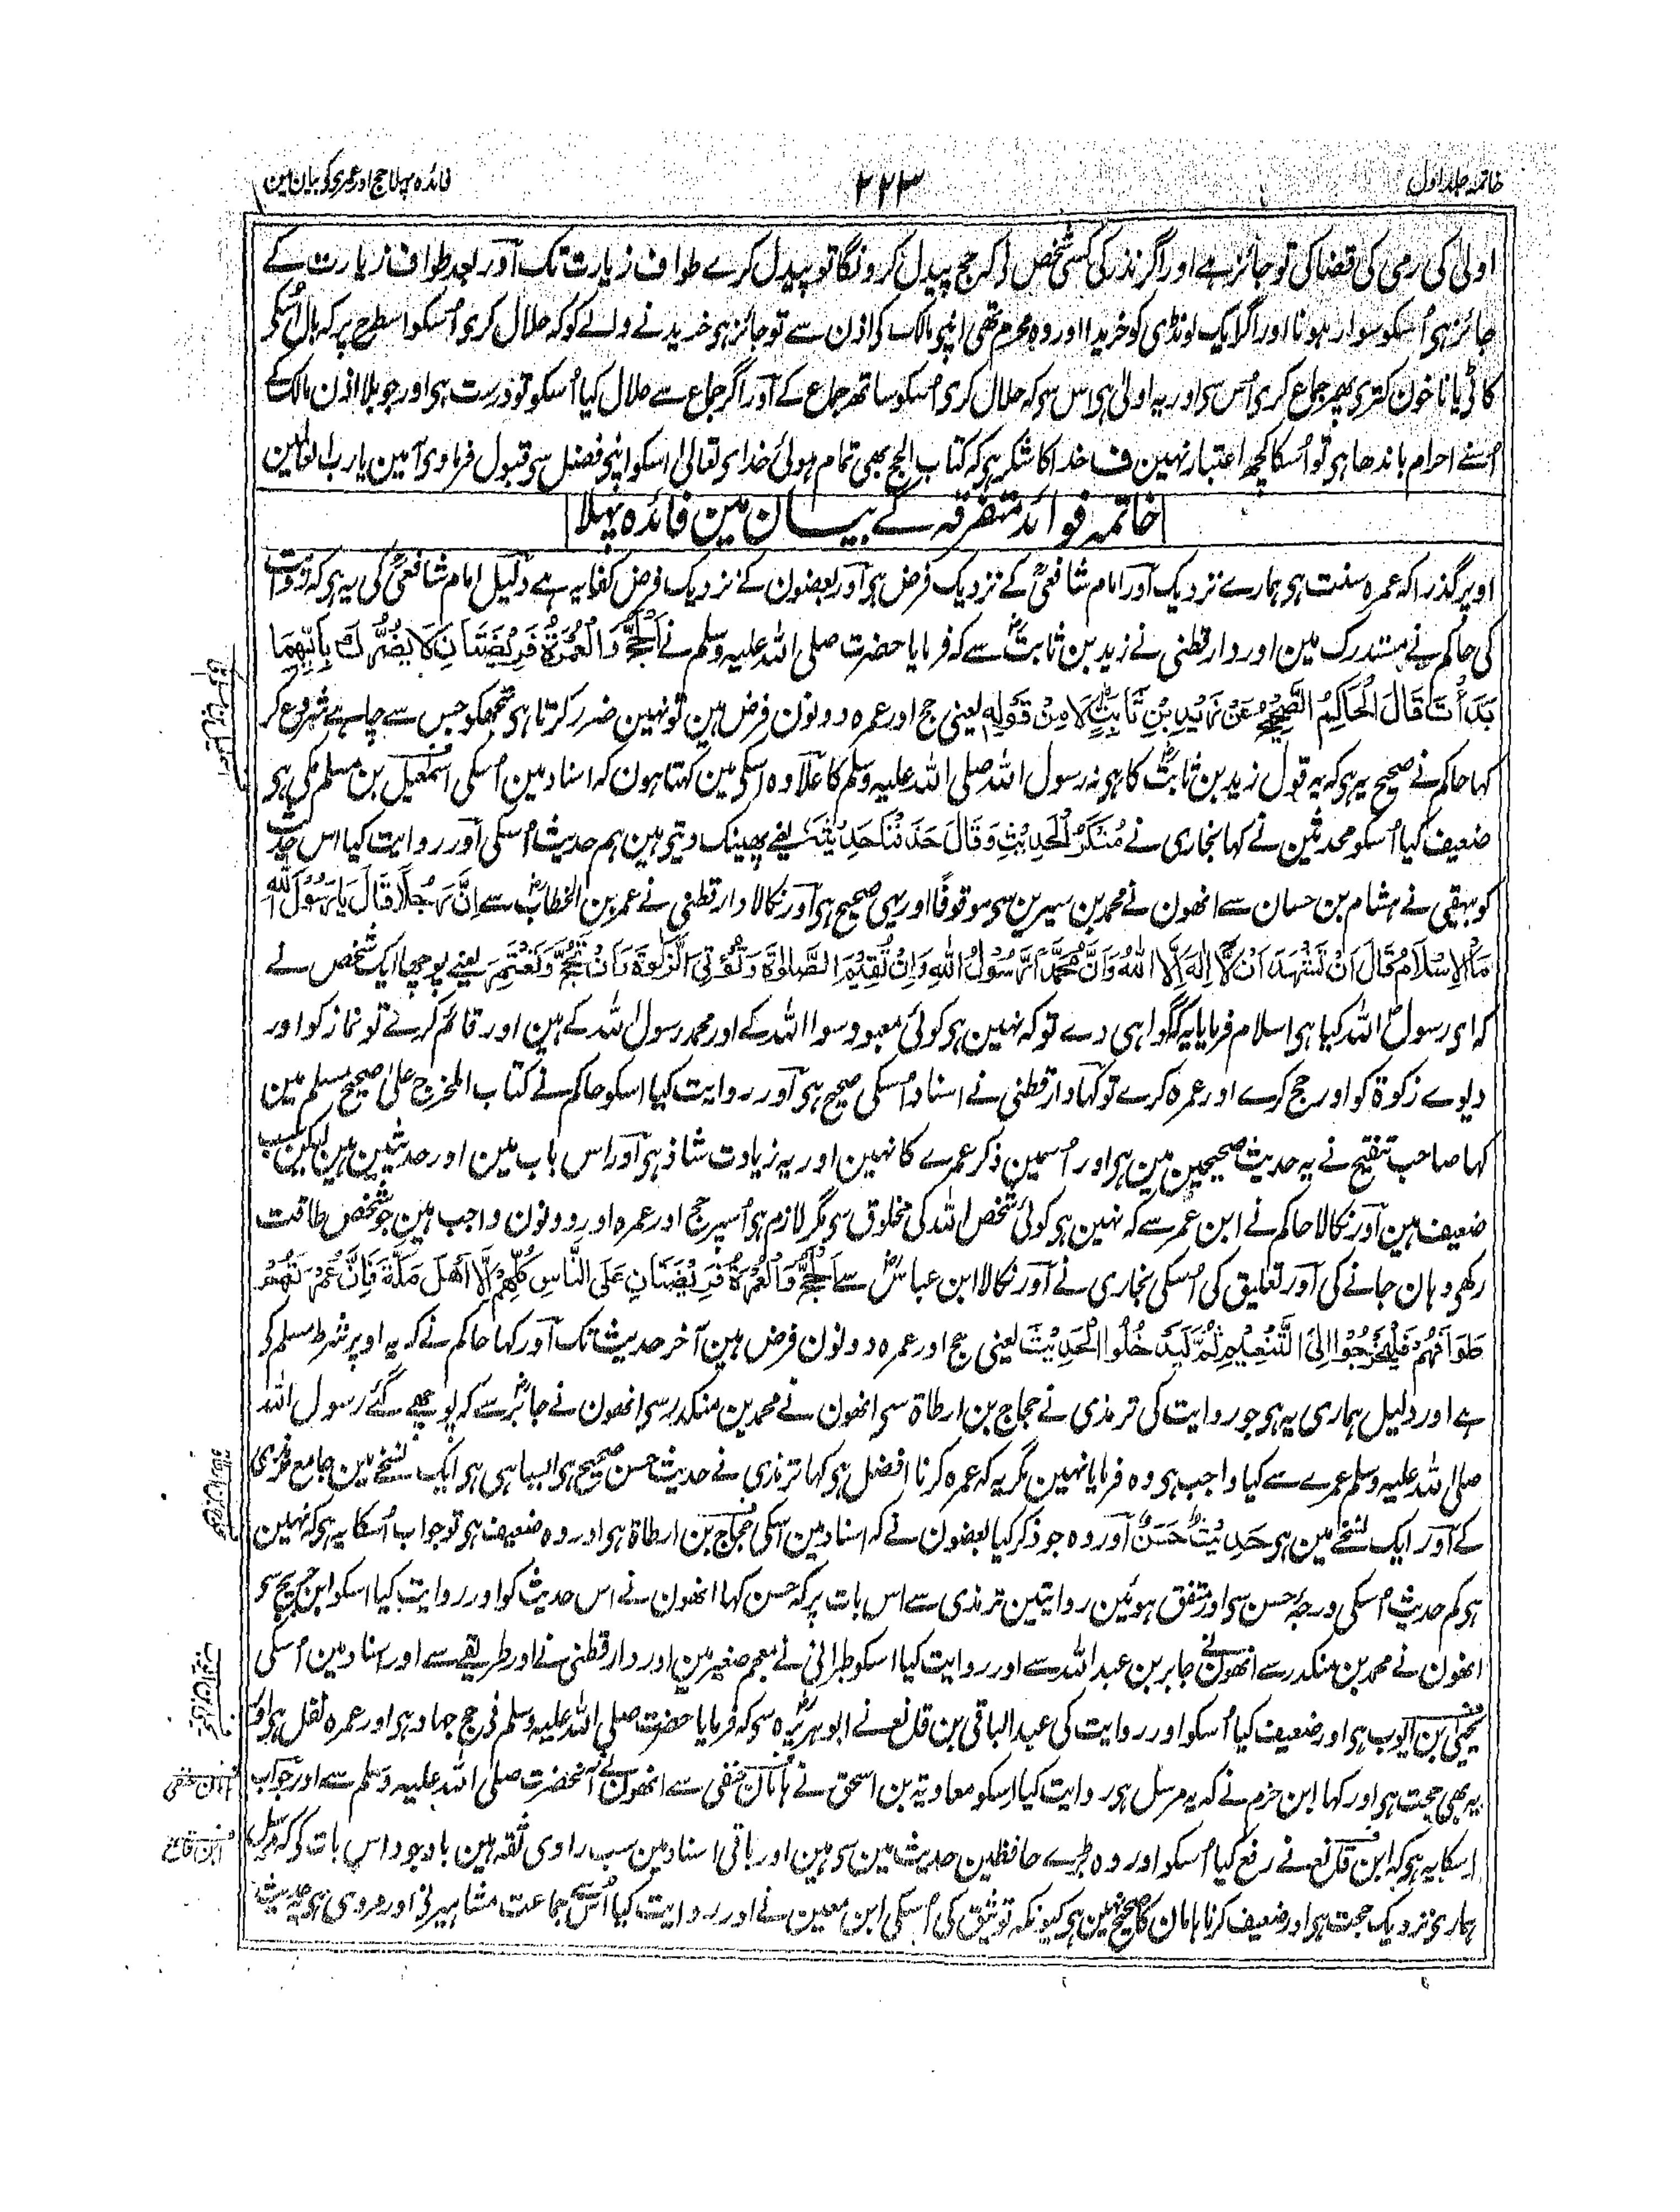 خاتمہ جلد اول
۲۲۳
فائدہ پہلا حج اور عمری کو بیان مین
اولیٰ کی رمی کی قضا کی تو جائز ہے اور اگر نذر کی کسی شخص نی کہ حج پیدل کرونگا تو پیدل کرے طواف زیارت تک اور بعد طواف زیارت کے
جائز ہی اُسکو سوار ہونا اور اگر ایک لونڈی کو خریدا اور وہ محرم تھی اپنی مالک کی اذن سے تو جائز ہی خریدنے والے کو کہ حلال کری اُسکو اسطرح پر کہ بال اُسکی
کاٹی یا ناخون کتری پھر جماع کری اُس سی اور یہ اولیٰ ہی اس سی کہ حلال کری اُسکو ساتھ جماع کے اور اگر جماع سے حلال کیا اُسکو تو درست ہی اور جو بلا اذن مالک کے
اُسنے احرام باندھا ہی تو اُسکا کچھ اعتبار نہین ف خدا کا شکر ہی کہ کتاب الحج بھی تمام ہوئی خدای تعالیٰ اسکو اپنی فضل سی قبول فرماوی آمین یا رب العالمین
خاتمہ فوائد متفرقہ کے بیان مین فائدہ پہلا
اوپر گذرا کہ عمرہ سنت ہی ہمارے نزدیک اور امام شافعیؒ کے نزدیک فرض ہی اور بعضون کے نزدیک فرض کفایہ ہے دلیل امام شافعیؒ کی یہ ہی کہ روایت
کی حاکم نے مستدرک مین اور دارقطنی نے زید بن ثابتؓ سے کہ فرمایا حضرت صلی اللہ علیہ وسلم نے اَلْحَجُّ وَالْعُمْرَةُ فَرِيْضَتَانِ لَا يَضُرُّكَ بِاَيِّهِمَا
بَدَأْتَ قَالَ الْحَاكِمُ الصَّحِيْحُ عَنْ زَيْدِ بْنِ ثَابِتٍ لَا مِنْ قَوْلِهٖ یعنی حج اور عمرہ دونون فرض ہین تو نہین ضرر کرتا ہی تجھکو جس سے چاہے شروع کر
کہا حاکم نے صحیح یہ ہی کہ یہ قول زید بن ثابتؓ کا ہی نہ رسول اللہ صلی اللہ علیہ وسلم کا علاوہ اسکی مین کہتا ہون کہ اسناد مین اُسکی اسمٰعیل بن مسلم مکی ہی
ضعیف کیا اُسکو محدثین نے کہا بخاری نے مُنْكَرُ الْحَدِيْثِ وَقَالَ حَدَثْنَا حَدِيْثَهٗ یعنے پھینک دیتی ہین ہم حدیث اُسکی اور روایت کیا اس حدیث
کو بیہقی نے ہشام بن حسان سے انھون نے محمد بن سیرین سی موقوفًا اور یہی صحیح ہی اور نکالا دارقطنی نے عمر بن الخطابؓ سے اِنَّ رَجُلًا قَالَ يَا رَسُوْلَ اللهِ
مَا الْاِسْلَامُ قَالَ اَنْ تَشْهَدَ اَنْ لَّا اِلٰهَ اِلَّا اللهُ وَاَنَّ مُحَمَّدًا رَسُوْلُ اللهِ وَاَنْ تُقِيْمَ الصَّلٰوةَ وَتُؤْتِيَ الزَّكٰوةَ وَاَنْ تَحُجَّ وَتَعْتَمِرَ یعنے پوچھا ایک شخص نے
کہ ای رسول اللہ کیا ہی اسلام فرمایا یہ کہ گواہی دے تو کہ نہین ہی کوئی معبود سوا اللہ کے اور محمد رسول اللہ کے ہین اور قائم کرے تو نماز کو اور
دیوے زکوۃ کو اور حج کرے اور عمرہ کرے تو کہا دارقطنی نے اسناد اُسکی صحیح ہی اور روایت کیا اسکو حاکم نے کتاب المخرج علیٰ صحیح مسلم مین
کہا صاحب تنقیح نے یہ حدیث صحیحین مین ہی اور اُسمین ذکر عمرے کا نہین اور یہ زیادت شاذ ہی اور اس باب مین اور حدیثین ہین لیکن سب
ضعیف ہین اور نکالا حاکم نے ابن عمر سے کہ نہین ہی کوئی شخص اللہ کی مخلوق سی مگر لازم ہی اُسپر حج اور عمرہ اور دونون واجب ہین جو شخص طاقت
رکھی وہان جانے کی اور تعلیق کی اُسکی بخاری نے اور نکالا ابن عباسؓ سے اَلْحَجُّ وَالْعُمْرَةُ فَرِيْضَتَانِ عَلَى النَّاسِ كُلِّهِمْ اِلَّا اَهْلَ مَكَّةَ فَاِنَّ عُمْرَتَهُمْ
طَوَافُهُمْ فَلْيَخْرُجُوْا اِلَى التَّنْعِيْمِ ثُمَّ لْيَدْخُلُوا الْحَدِيْثَ یعنی حج اور عمرہ دونون فرض ہین آخر حدیث تک اور کہا حاکم نے کہ یہ اوپر شرط مسلم کی
ہے اور دلیل ہماری یہ ہی جو روایت کی ترمذی نے حجاج بن ارطاۃ سی انھون نے محمد بن منکدر سی انھون نے جابرؓ سے کہ پوچھے گئے رسول اللہ
صلی اللہ علیہ وسلم عمرے سے کیا واجب ہی وہ فرمایا نہین مگر یہ کہ عمرہ کرنا افضل ہی کہا ترمذی نے حدیث حسن صحیح ہی ایسا ہی ہی ایک نسخے مین جامع ترمذی
کے اور ایک نسخے مین ہی حَدِيْثٌ حَسَنٌ اور وہ جو ذکر کیا بعضون نے کہ اسناد مین اسکی حجاج بن ارطاۃ ہی اور وہ ضعیف ہی تو جواب اُسکا یہ ہی کہ نہین
ہی کم حدیث اُسکی درجۂ حسن سی اور متفق ہوئین روایتین ترمذی سے اس بات پر کہ حسن کہا انھون نے اس حدیث کو اور روایت کیا اسکو ابن جریج سی
انھون نے محمد بن منکدر سے انھون نے جابر بن عبد اللہ سے اور روایت کیا اسکو طبرانی نے معجم صغیر مین اور دارقطنی نے اور طریقے سے اور اسناد مین اُسکی
یحییٰ بن ایوب ہی اور ضعیف کیا اُسکو اور روایت کی عبد الباقی بن قانع نے ابوہریرہؓ سی کہ فرمایا حضرت صلی اللہ علیہ وسلم نی حج جہاد ہی اور عمرہ نفل ہی اور
یہ بھی حجت ہی اور کہا ابن حزم نے کہ یہ مرسل ہی روایت کیا اسکو معاویہ بن اسحٰق نے ماہان حنفی سے انھون نے آنحضرت صلی اللہ علیہ وسلم سے اور جواب
اسکا یہ ہی کہ ابن قانع نے رفع کیا اُسکو اور وہ بڑے حافظین حدیث مین سی ہین اور باقی اسناد مین سب راوی ثقہ ہین باوجود اس بات کو کہ مرسل
ہماری نزدیک حجت ہی اور ضعیف کرنا ماہان کا صحیح نہین ہی کیونکہ توثیق کی اُسکی ابن معین نے اور روایت کیا اُس سے جماعت مشاہیر نی اور مروی ہی یہ حدیث
ماہان حنفی
ابن قانع